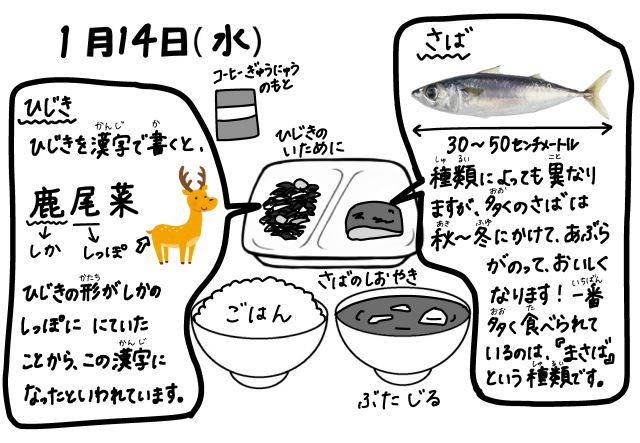 1月14日(水)
コーヒーぎゅうにゅう
のもと
ひじきの
いために
さばのしおやき
ごはん
ぶたじる
ひじき
ひじきを漢字で書くと、
かんじ
か
鹿尾菜
しか
しっぽ
ひじきの形がしかの
かたち
しっぽに にていた
ことから、この漢字に
かんじ
なったといわれています。
さば
30〜50センチメートル
種類によっても異なり
しゅるい
こと
ますが、多くのさばは
おお
秋〜冬にかけて、あぶら
あき
ふゆ
がのって、おいしく
なります!一番
いちばん
多く食べられて
おお
た
いるのは、『まさば』
という種類です。
しゅるい